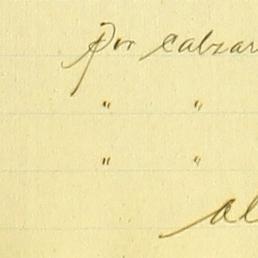 Por calzar
" "
" "
al